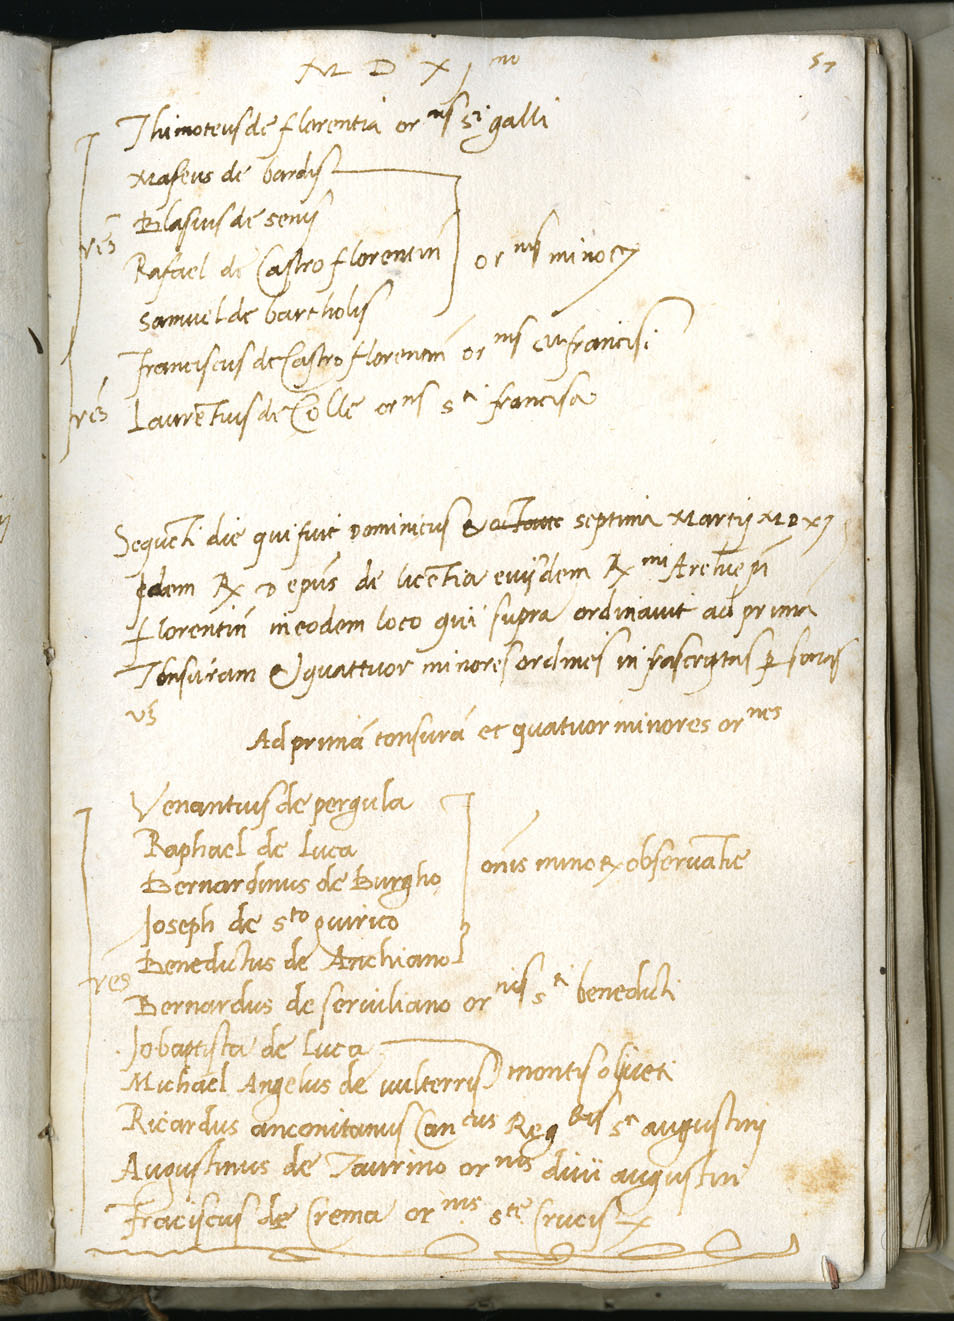 M D X j no
57
Thimoteus de florentia or nis sti galli
Mafeus de bardis
Blasius de senis
res
Rafael de Castro florentin
or nis minor
Samuel de bartholis
Franciscus de Castro florentin or nis sti francisi
res
Laurentius de Colle or nis sti francisci
Sequeti die qui fuit Dominicus & septima Martij MDXj
Idem R D epus de licetia eiusdem R mi
florentin in eodem loco qui supra ordinavit ad prima
Tonsuram & quattuor minores ordines infrascriptas psonas
vz
Ad primā tonsurā et quatuor minores or nes
Venantius de pergula
Raphael de Luca
Bernardinus de Burgho
onis minor observatie
Joseph de sto quirico
Benedictus de Anchiano
res
Bernardus de serviliano or nis sti benedicti
Jobaptista de Luca
Michael Angelus de vulterris montis oliveti
Ricardus anconitanus Can cus Reg sti augustini
Augustinus de Taurino or nis divi augustini
Fraciscus de Crema or nis ste Crucis